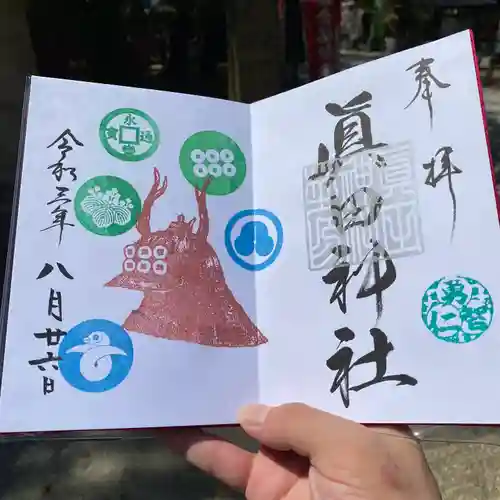 奉拝
眞田神社
智仁勇
永通寳
令和三年
八月廿六日